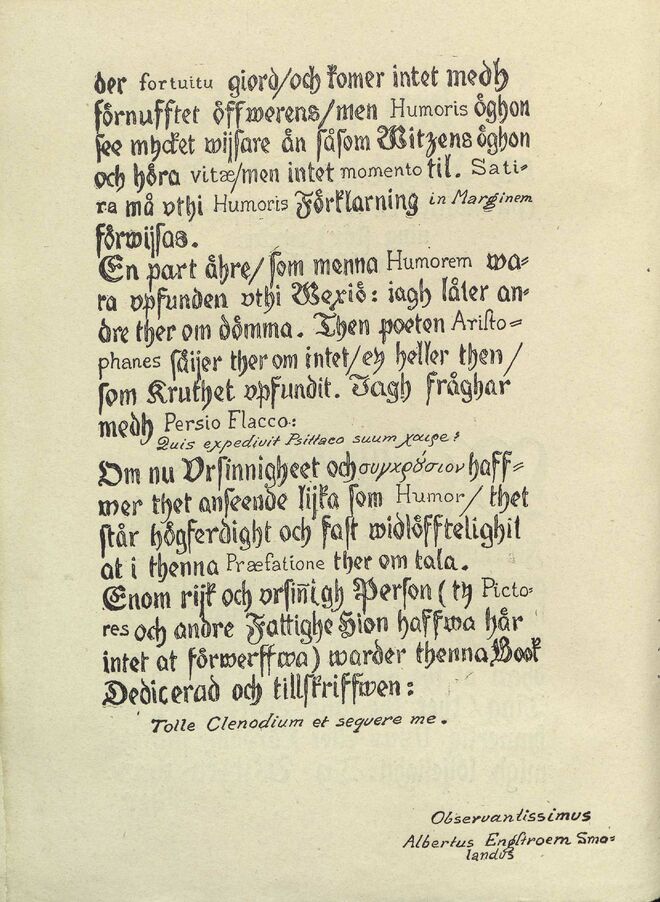 der fortuitu giord/och komer intet medh
förnufftet öffwerens/men Humoris öghon
see mycket wijsare än såsom Witzens öghon
och höra vitæ/men intet momento til. Sati-
ra må vthi Humoris Förklarning in Marginem
förwijsas.
En part ähre/som menna Humorem wa-
ra vpfunden vthi Wexiö: iagh låter an-
dre ther om dömma. Then poeten Aristo=
phanes säijer ther om intet/ey heller then/
som Kruthet vpfundit. Jagh fråghar
medh Persio Flacco:
Quis expedivit Psittaco suum χαιρε?
Om nu Vrsinnigheet och συγχρόσιον haff=
wer thet anseende lijka som Humor/thet
står högferdight och fast widlöfftelighit
at i thenna Præfatione ther om tala.
Enom rijk och vrsiñigh Person (ty Picto-
res och andre Fattighe Hion haffwa här
intet at förwerffwa) warder thenna Book
Dedicerad och tillskriffwen:
Tolle Clenodium et sequere me.
Observantissimus
Albertus Engstroem Smo=
landus